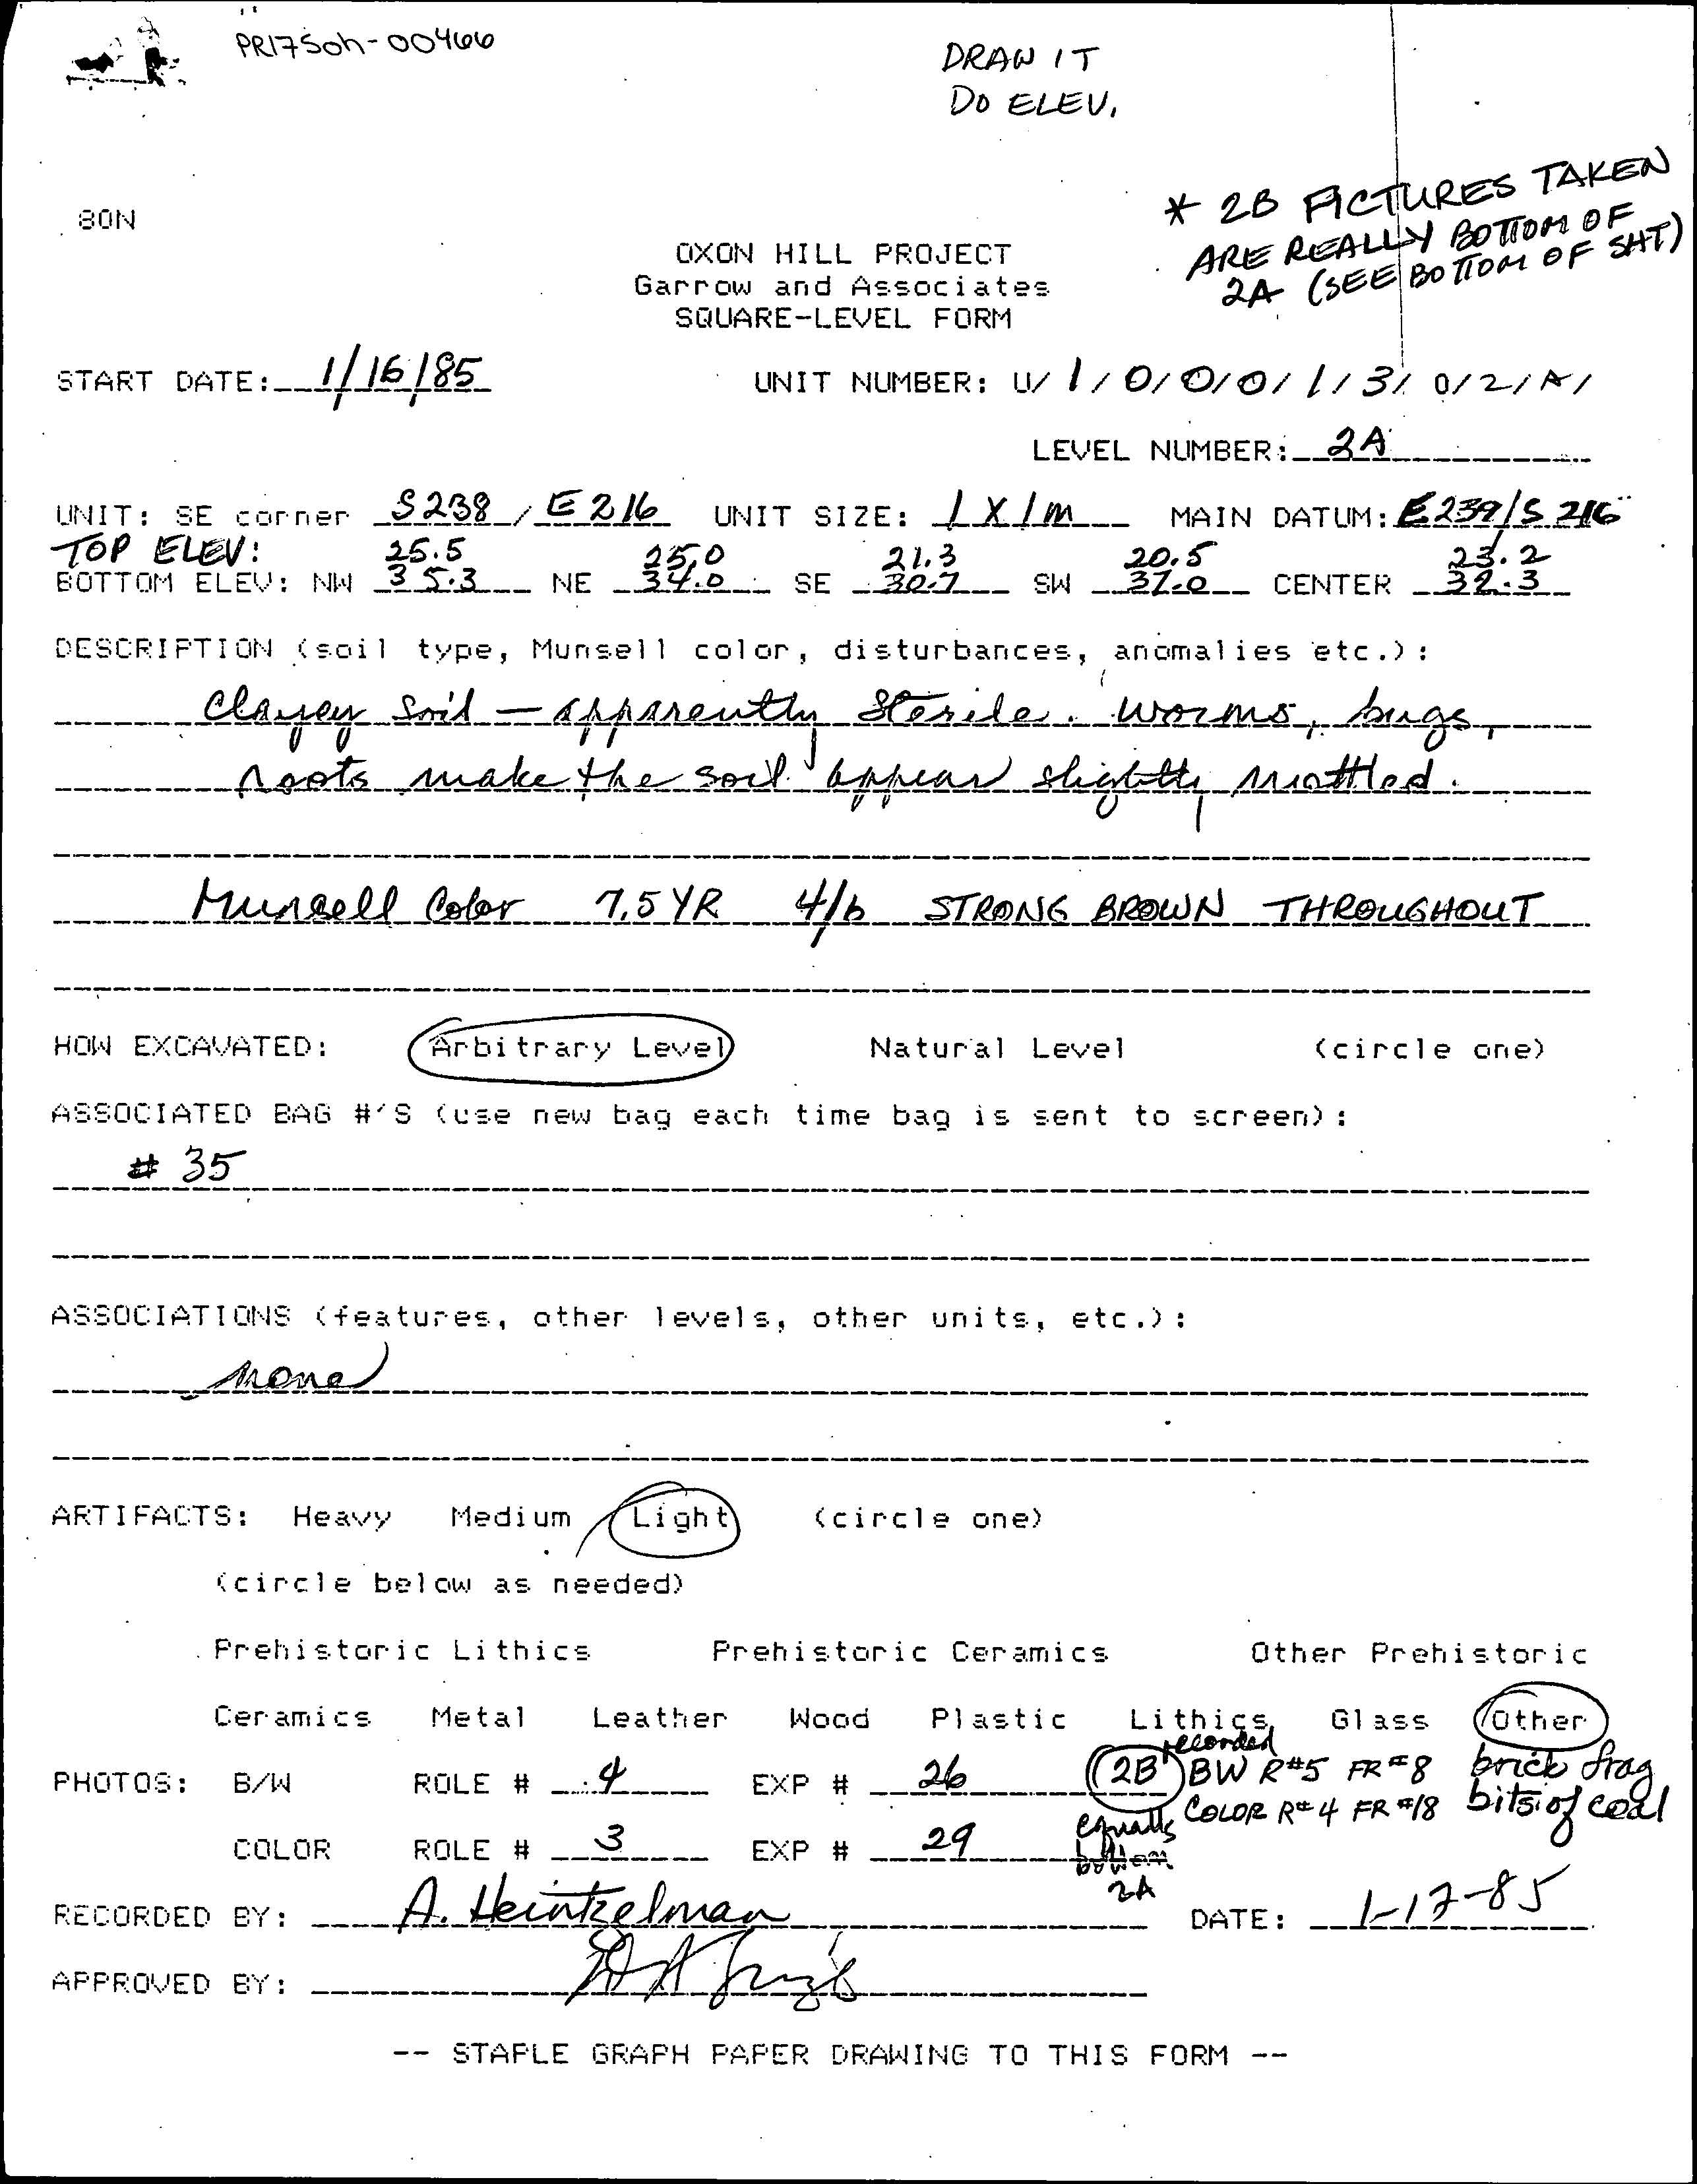 PR175oh-00466
DRAW IT
DO ELEV.
* 2B PICTURES TAKEN
ARE REALLY BOTTOM OF
2A (SEE BOTTOM OF SHT)
80N
OXON HILL PROJECT
Garrow and Associates
SQUARE-LEVEL FORM
START DATE: 1/16/85 UNIT NUMBER: U/ 1/0/0/0/1/3/ 0/2/A/
LEVEL NUMBER: 2A
UNIT: SE corner S238 / E216 UNIT SIZE: 1 X 1 m MAIN DATUM: E239/S 216
TOP ELEV: 25.5 25.0 21.3 20.5 23.2
BOTTOM ELEV: NW 35.3 NE 34.0 SE 30.7 SW 31.0 CENTER 32.3
DESCRIPTION (soil type, Munsell color, disturbances, anomalies etc.):
Clayey soil - apparently sterile. Worms, bugs,
roots make the soil appear slightly mottled.
Munsell Color 7.5 YR 4/6 STRONG BROWN THROUGHOUT
HOW EXCAVATED: Arbitrary Level Natural Level (circle one)
ASSOCIATED BAG #'S (use new bag each time bag is sent to screen):
# 35
ASSOCIATIONS (features, other levels, other units, etc.):
none
ARTIFACTS: Heavy Medium Light (circle one)
(circle below as needed)
Prehistoric Lithics Prehistoric Ceramics Other Prehistoric
Ceramics Metal Leather Wood Plastic Lithics Glass Other
recorded
PHOTOS: B/W ROLE # 4 EXP # 26 2B BW R#5 FR#8 brick frag
equals COLOR R#4 FR #18 bits of coal
COLOR ROLE # 3 EXP # 29 bottom
2A
RECORDED BY: A. Heintzelman DATE: 1-17-85
APPROVED BY:
-- STAPLE GRAPH PAPER DRAWING TO THIS FORM --